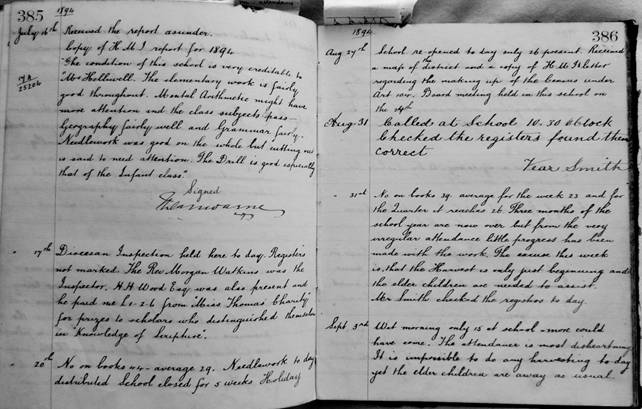 385
1894
July 16th Received the report as under.
Copy of H.M.I report for 1894
"The condition of this school is very creditable to
Mrs Holliwell. The elementary work is fairly
good throughout. Mental Arithmetic might have
more attention and the class subjects pass
Geography fairly well and Grammar fairly.
Needlework was good on the whole but cutting out
is said to need attention. The Drill is good especially
that of the Infant class."
Signed
" 17th Diocesan Inspection held here to day. Registers
not marked. The Rev. Morgan Watkins was the
Inspector. H.H. Wood Esq. was also present and
he paid me £0-2-6 from "Miss Thomas' Charity"
for prizes to scholars who distinguished themselves
in "Knowledge of Scripture".
" 20th No on books 44 - average 29. Needlework to day
distributed School closed for 5 weeks Holiday
386
1894
Aug 27th School re opened to day only 26 present. Received
a map of the district and a copy of H.M.I's letter
regarding the making up of the Census under
Board meeting held in this school on
the 14th
Aug. 31 Called at School 10.30 O'Clock
Checked the registers found them
correct
Vear Smith
" 31st No on books 39. average for the week 23 and for
the Quarter it reaches 26. Three months of the
school year are now over but from the very
irregular attendance little progress has been
made with the work. The excuse this week
is, that the Harvest is only just beginning and
the elder children are needed to assist.
Mr Smith checked the registers to day.
Sept 3rd Wet morning only 15 at school - more could
have come. The attendance is most disheartening
It is impossible to do any harvesting to day
yet the elder children are away as usual